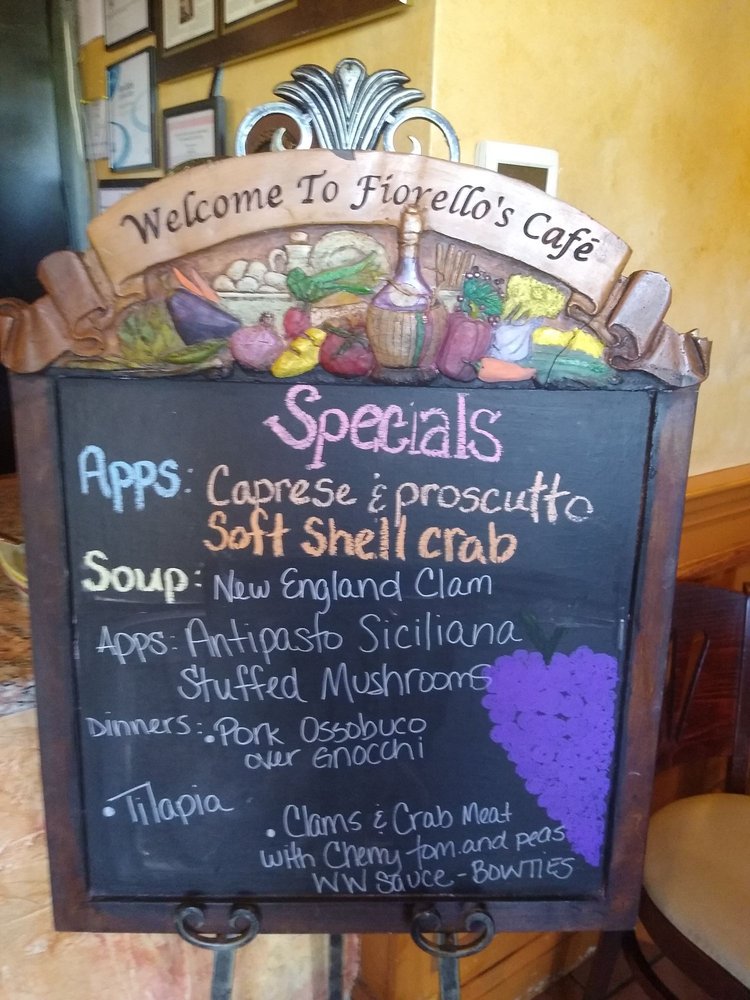 Welcome To Fiorello's Café
Specials
Apps: Caprese & proscutto
Soft Shell crab
Soup: New England Clam
Apps: Antipasto Siciliana
Stuffed Mushrooms
Dinners: • Pork Ossobuco
over Gnocchi
• Tilapia
• Clams & Crab Meat
with Cherry tom. and peas
WW Sauce - BOWTIES